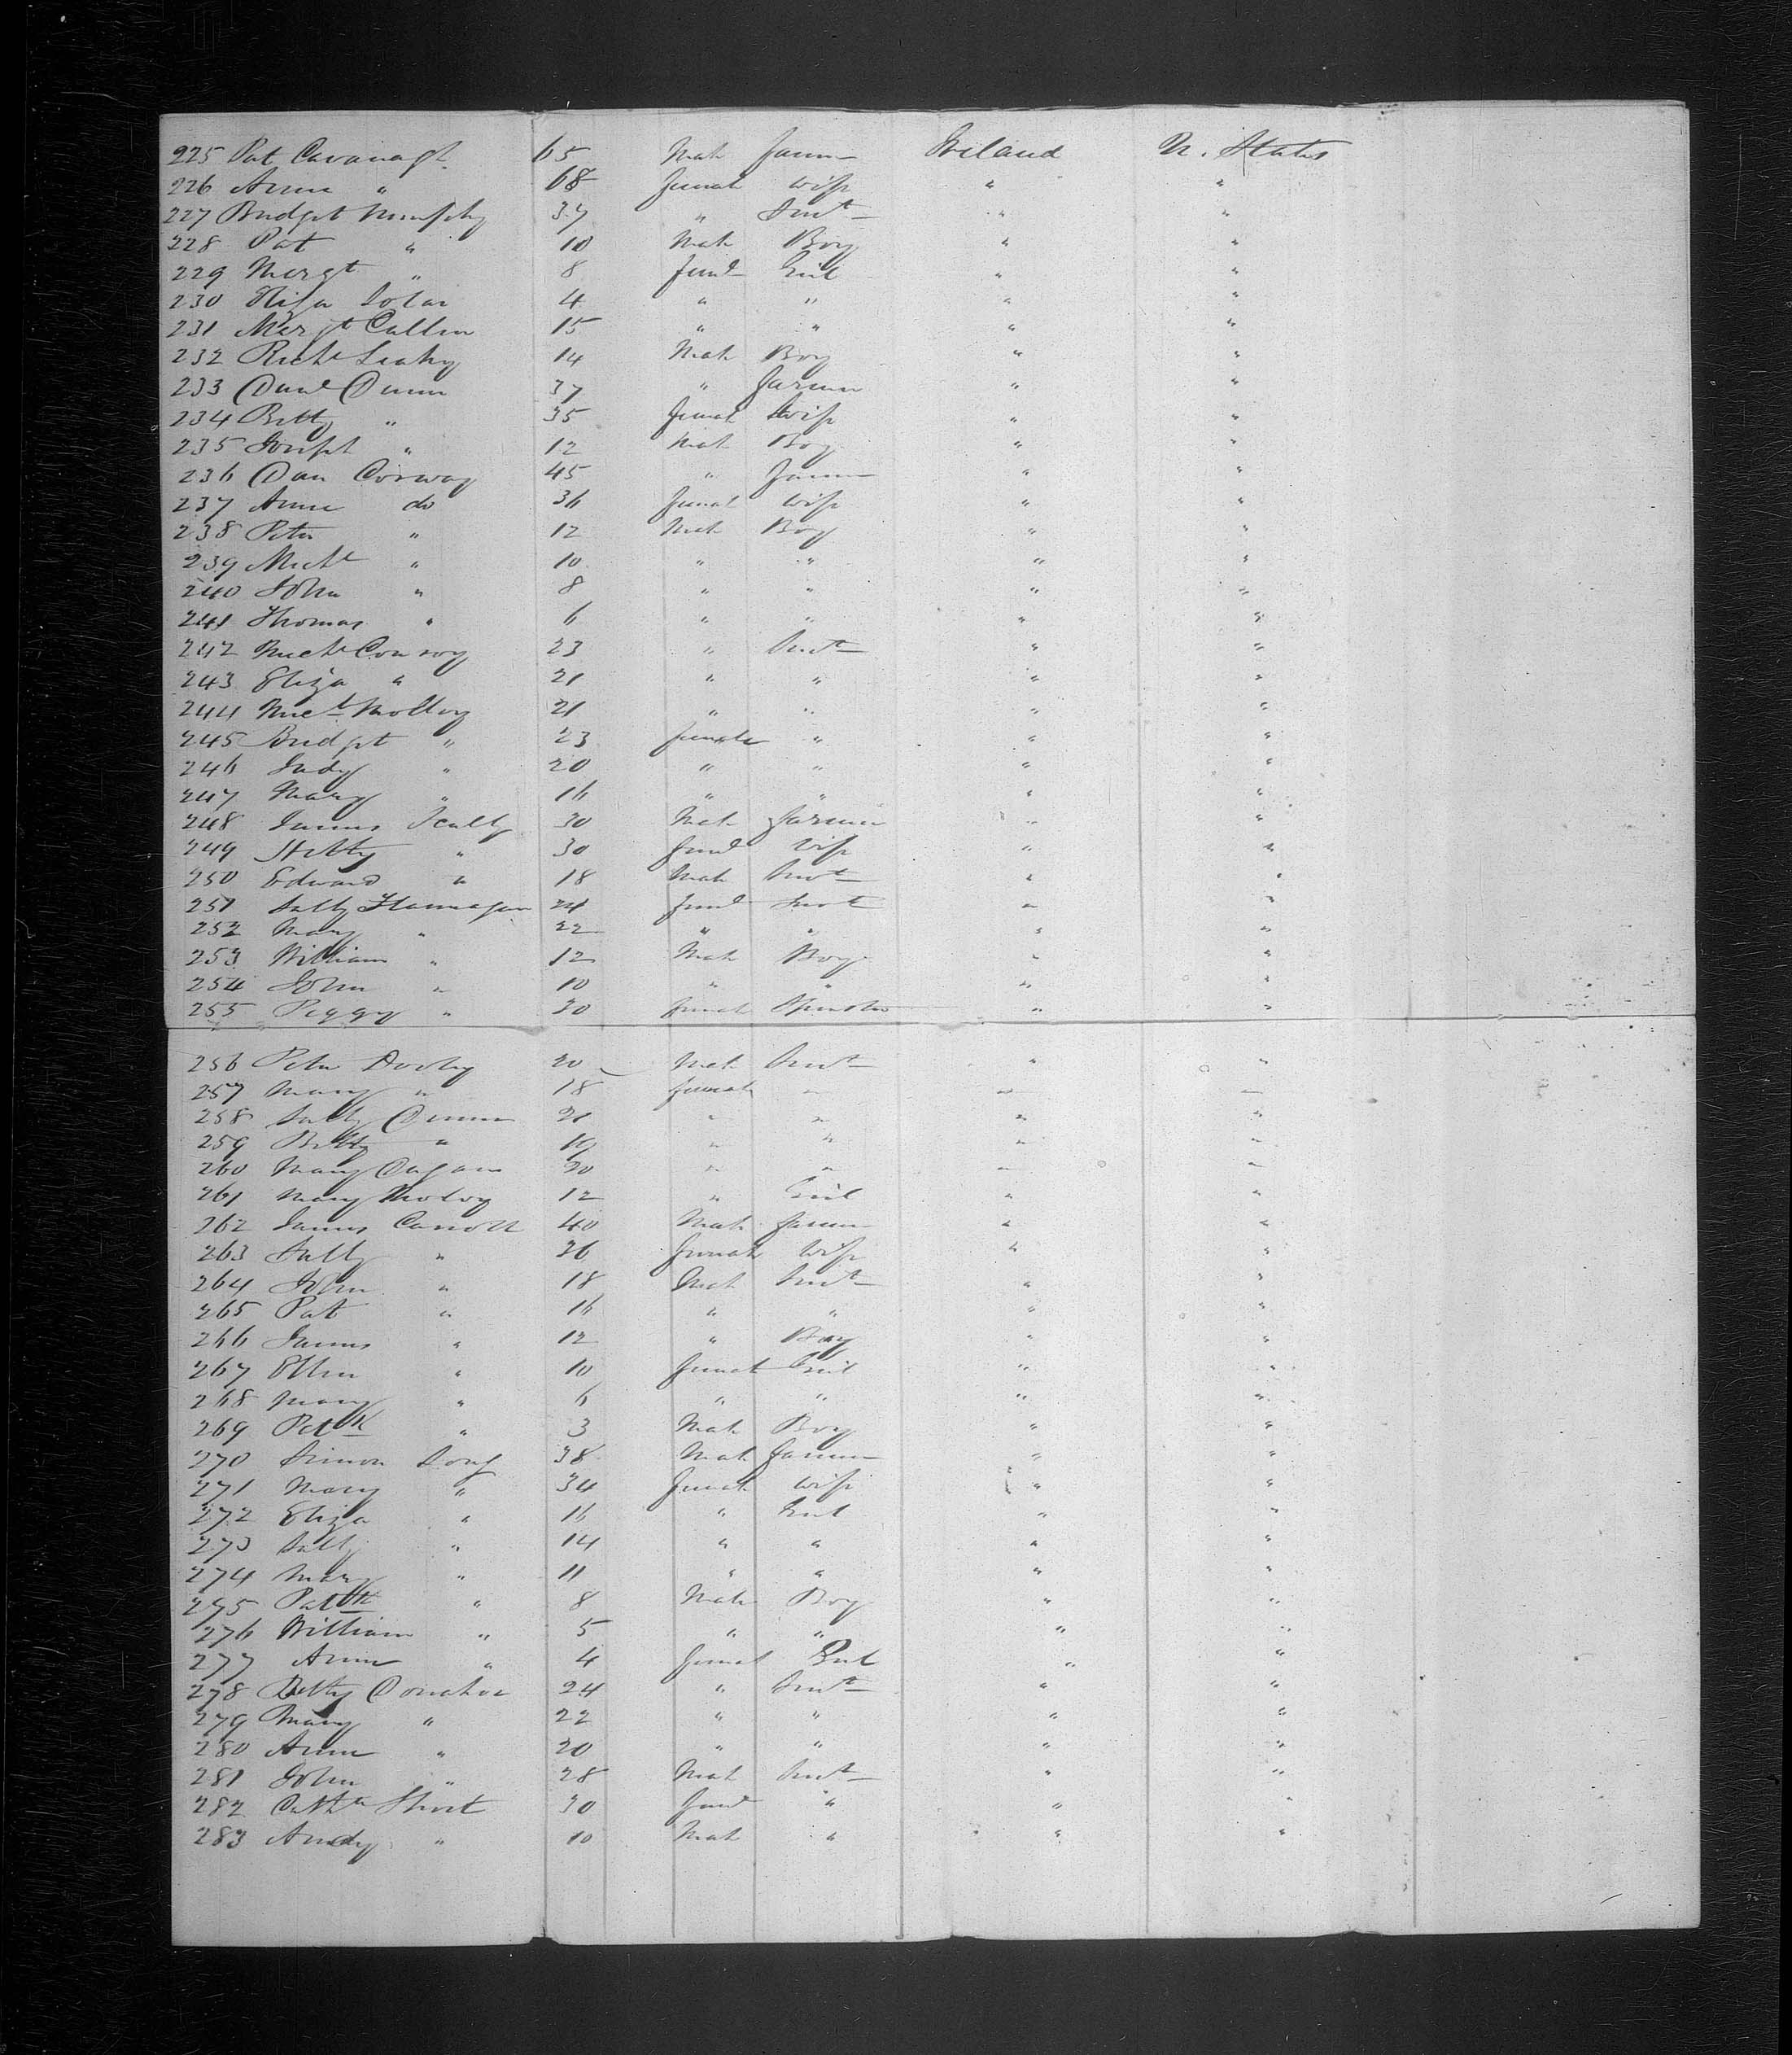 225 Pat Cavanagh 65 Male Farmer Ireland U. States
226 Anne " 68 female wife " "
227 Bridget Murphy 37 " Servt " "
228 Pat " 10 Male Boy " "
229 Margt " 8 feml Girl " "
230 Eliza 4 " " " "
231 Margt Cullen 15 " " " "
232 Richd Leahy 14 Male Boy " "
233 Danl Dunn 37 " farmer " "
234 Betty " 35 female wife " "
235 Joseph " 12 Male Boy " "
236 Dan Conway 45 " farmer " "
237 Anne do 36 female wife " "
238 Peter " 12 Male Boy " "
239 Michl " 10 " " " "
240 John " 8 " " " "
241 Thomas " 6 " " " "
242 Michl Conroy 23 " Servt " "
243 Eliza " 21 " " " "
244 Micl Molloy 21 " " " "
245 Bridget " 23 female " " "
246 Judy " 20 " " " "
247 Mary " 16 " " " "
248 James Scully 30 Male farmer " "
249 Hetty " 30 feml wife " "
250 Edward " 18 Male Servt " "
251 Sally Flannagan 24 feml Servt " "
252 Mary " 22 " " " "
253 William " 12 Male Boy " "
254 John " 10 " " " "
255 Peggy " 30 female Spinster " "
256 Peter Dooley 20 Male Servt " "
257 Mary " 18 female " " "
258 Sally Dunn 21 " " " "
259 Betty " 19 " " " "
260 Mary Dugan 20 " " " "
261 Mary Moloy 12 " Girl " "
262 James Carroll 40 Male farmer " "
263 Sally " 36 female wife " "
264 John " 18 Male Servt " "
265 Pat " 16 " " " "
266 James " 12 " Boy " "
267 Ellen " 10 female Girl " "
268 Mary " 6 " " " "
269 Patk " 3 Male Boy " "
270 Simon Long 38 Male farmer " "
271 Mary " 34 female wife " "
272 Eliza " 16 " Girl " "
273 Sally " 14 " " " "
274 Mary " 11 " " " "
275 Patk " 8 Male Boy " "
276 William " 5 " " " "
277 Anne " 4 female Girl " "
278 Betty Donahoe 24 " Servt " "
279 Mary " 22 " " " "
280 Anne " 20 " " " "
281 John " 28 Male Servt " "
282 Cathn Short 30 feml " " "
283 Andy " 10 Male " " "